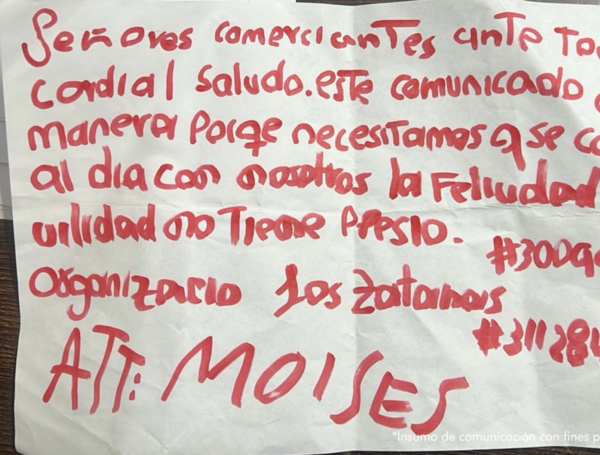 Señores comerciantes ante to
cordial saludo. este comunicado
manera Porqe necesitamos q se co
al dia con nosotros la Felicidad
uilidad no Tiene Presio.
#3009
Organizacio Los Zatanas
#31128
ATT: MOISES
*Insumo de comunicación con fines p